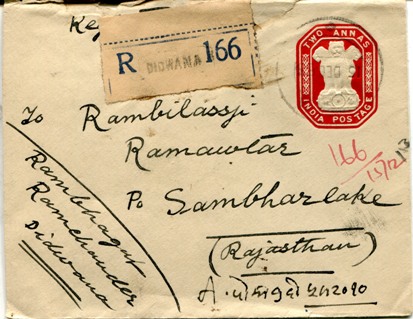 R DIDWANA 166
TWO ANNAS
INDIA POSTAGE
To Rambilassji
Ramawtar
Po Sambharlake
(Rajasthan)
166
15/12
Rambhagat
Ramchander
Didwana